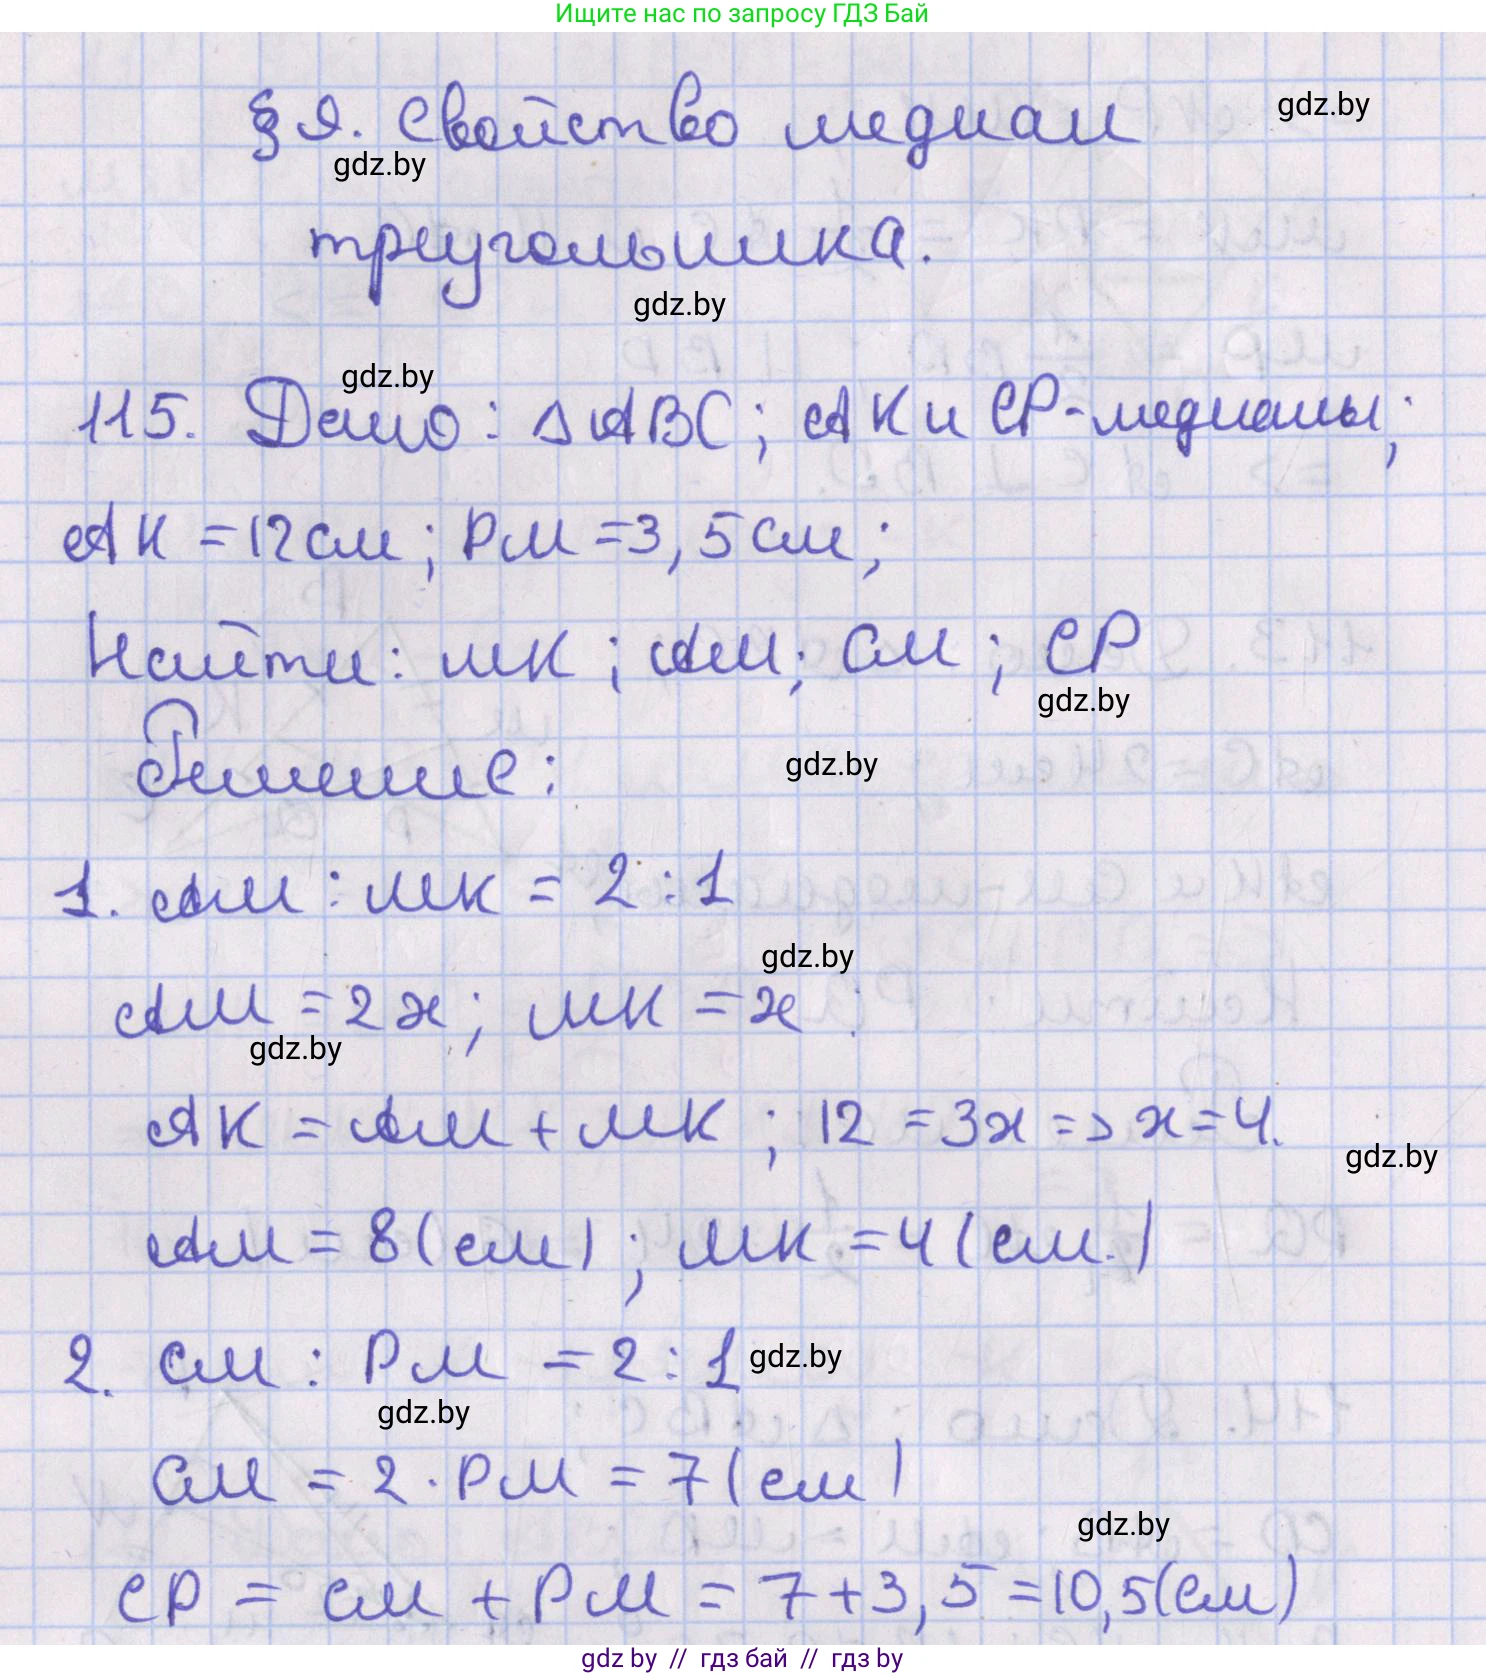 Ищите нас по запросу ГДЗ Бай
gdz.by
§ 9. Свойство медиан
gdz.by
треугольника.
gdz.by
gdz.by
115. Дано: △ABC; AK и CP-медианы;
AK = 12 см; PM = 3,5 см;
Найти: MK; AM; CM; CP
gdz.by
Решение:
gdz.by
1. AM : MK = 2 : 1
gdz.by
AM = 2x; MK = x
gdz.by
AK = AM + MK; 12 = 3x => x = 4.
gdz.by
AM = 8 (см); MK = 4 (см.)
2. CM : PM = 2 : 1
gdz.by
gdz.by
CM = 2 · PM = 7 (см)
gdz.by
CP = CM + PM = 7 + 3,5 = 10,5 (см)
gdz by // гдз бай // гдз by